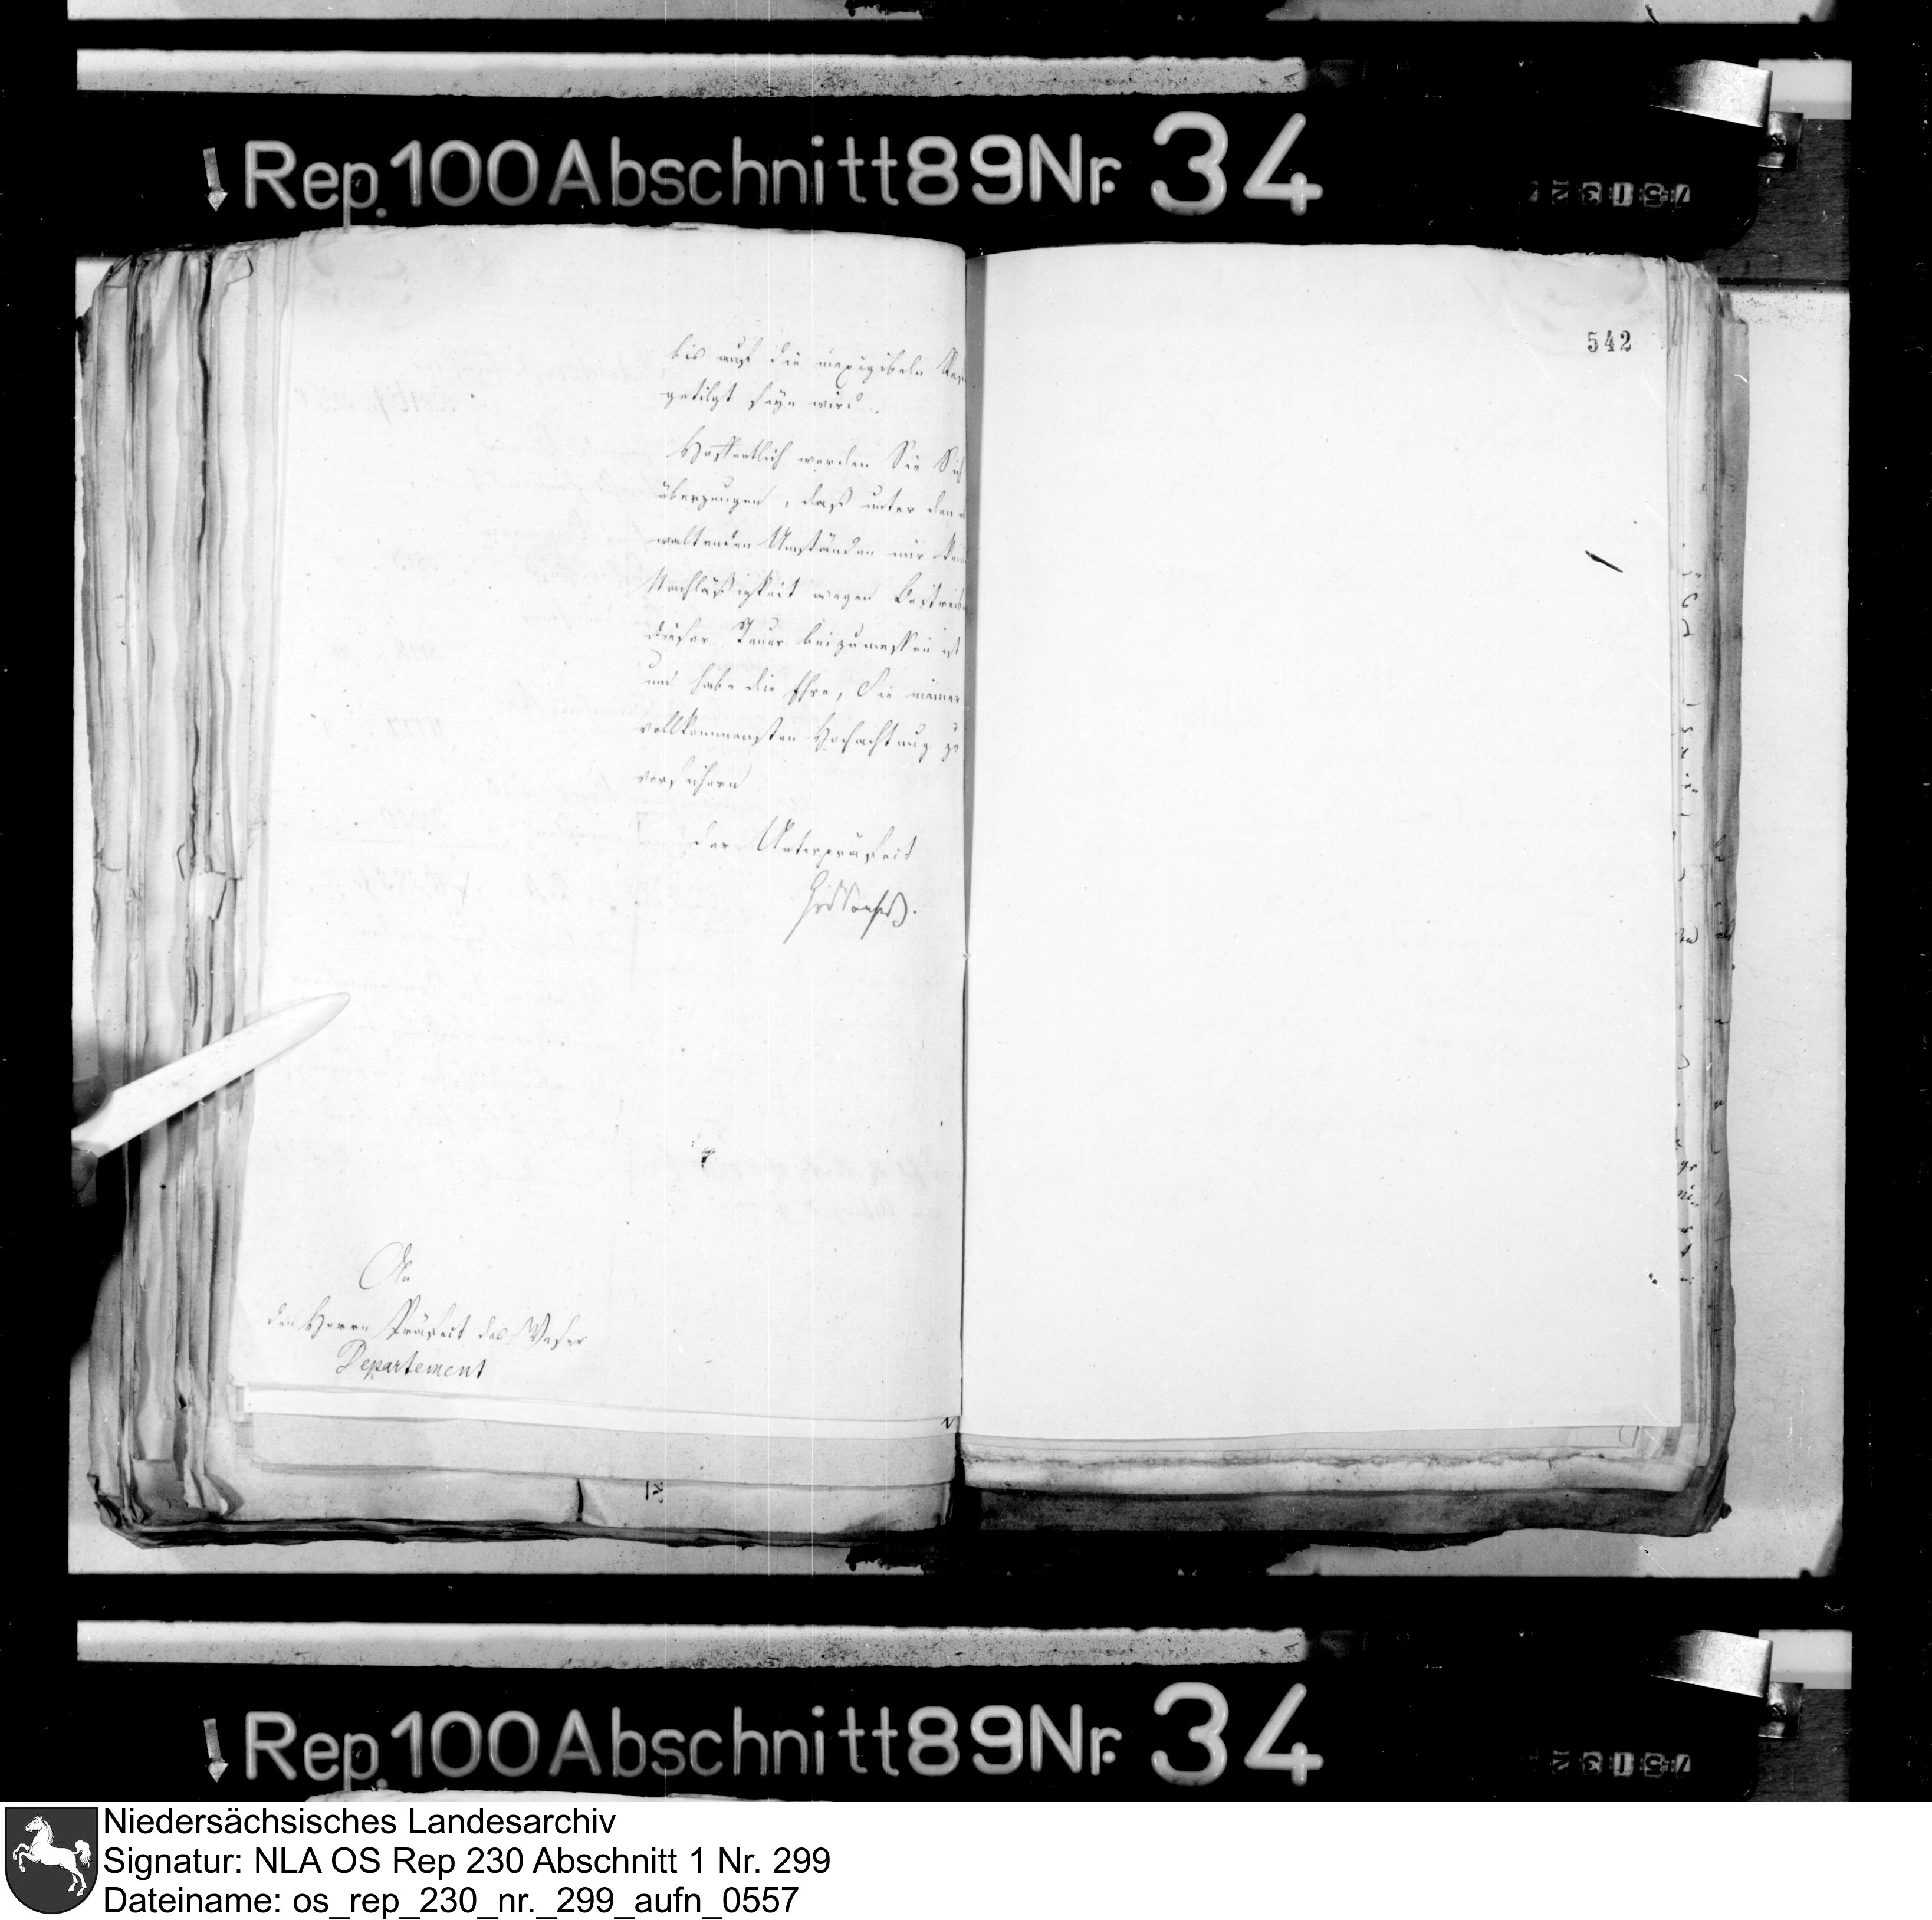 Rep. 100 Abschnitt 89 Nr. 34
542
bis auf die inexigibeln
getilgt seyn wird.
Hoffentlich werden Sie Sich
überzeugen, daß unter den
waltenden Umständen mir
Nachläßigkeit wegen
dieser Steuer beizumessen ist
und habe die Ehre, Sie meiner
vollkommensten Hochachtung zu
versichern
der Unterpräfect
An
den Herrn Präfect des Weser
Departement
Rep. 100 Abschnitt 89 Nr. 34
Niedersächsisches Landesarchiv
Signatur: NLA OS Rep 230 Abschnitt 1 Nr. 299
Dateiname: os_rep_230_nr._299_aufn_0557